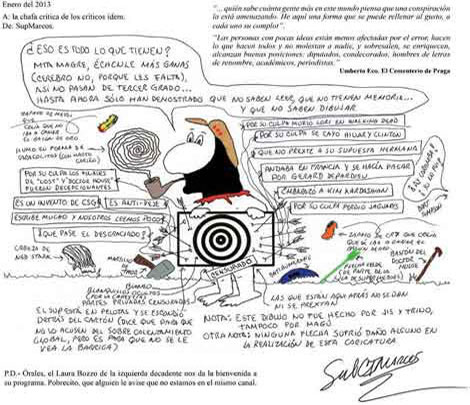 Enero del 2013
A: la chafa crítica de los críticos ídem.
De. SupMarcos.
"... quién sabe cuánta gente más en este mundo piensa que una conspiración
la está amenazando. He aquí una forma que se puede rellenar al gusto, a
cada uno su complot".
"Las personas con pocas ideas están menos afectadas por el error, hacen
lo que hacen todos y no molestan a nadie, y sobresalen, se enriquecen,
alcanzan buenas posiciones: diputados, condecorados, hombres de letras
de renombre, académicos, periodistas."
Umberto Eco. El Cementerio de Praga
¿ESO ES TODO LO QUE TIENEN?
MTA MAGRE, ÉCHENLE MÁS GANAS
(CEREBRO NO, PORQUE LES FALTA),
ASÍ NO PASAN DE TERCER GRADO...
HASTA AHORA SÓLO HAN DEMOSTRADO QUE NO SABEN LEER, QUE NO TIENEN MEMORIA...
Y QUE NO SABEN DIBUJAR
HUMO EN FORMA DE
CARACOLITOS (CON HARTO
POR SU CULPA LOS FINALES
DE "LOST" Y "DOCTOR HOUSE"
FUERON DECEPCIONANTES
ES UN INVENTO DE CSG
ES ANTI-PEJE
ESCRIBE MUCHO Y NOSOTROS LEEMOS POCO
¿QUE PASE EL DESGRACIADO?
POR SU CULPA MURIÓ LORI DE WALKING DEAD
POR SU CULPA SE CAYÓ HILLARY CLINTON
QUE NO PREÑE A SU SUPUESTA HERMANA
ANDABA EN FRANCIA Y SE HACÍA PASAR
POR GERARD DEPARDIEU
EMBARAZÓ A KIM KARDASHIAN
POR SU CULPA PERDIÓ JAGUARES
CABEZA DE
NED STARK
MARTILLO
DE THOR
CENSURADO
BATIBUMERANG
ZAPATO DE
FLECHA VERDE
BASTÓN DEL
DOCTOR
HOUSE
PARTES PRIVADAS CENSURADAS
EL SUP ESTÁ EN PELOTAS Y SE ESCONDIÓ
DETRÁS DEL CARTÓN (DICE QUE PARA QUE
NO LO ACUSEN DEL SOBRE CALENTAMIENTO
GLOBAL, PERO ES PARA QUE NO SE LE
VEA LA BARRIGA)
LAS QUE ESTÁN AQUÍ ATRÁS NO SE DAN
NI SE PRESTAN
NOTA: ESTE DIBUJO NO FUE HECHO POR JIS Y TRINO,
TAMPOCO POR MAGÚ
OTRA NOTA: NINGUNA FLECHA SUFRIÓ DAÑO ALGUNO EN
LA REALIZACIÓN DE ESTA CARICATURA
SubCIMarcos
P.D.- Órales, el Laura Bozzo de la izquierda decadente nos da la bienvenida a
su programa. Pobrecito, que alguien le avise que no estamos en el mismo canal.